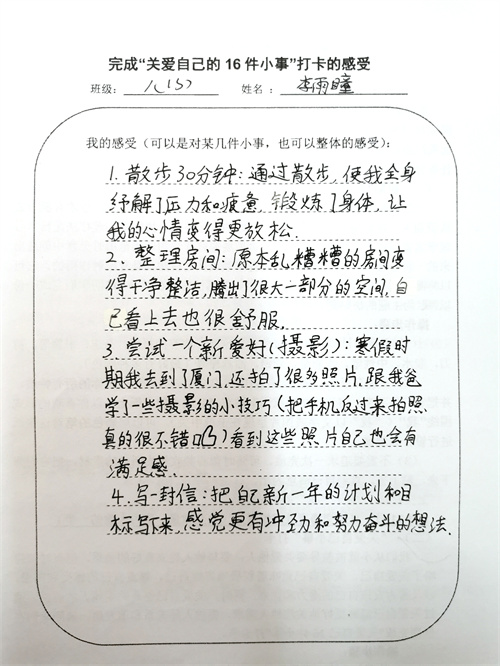 完成“关爱自己的16件小事”打卡的感受
班级： 八(5) 姓名： 李雨瞳
我的感受（可以是对某几件小事，也可以整体的感受）：
1. 散步30分钟：通过散步，使我全身
纾解了压力和疲惫，锻炼了身体，让
我的心情变得更放松.
2. 整理房间：原本乱糟糟的房间变
得干净整洁,腾出了很大一部分的空间,自
己看上去也很舒服.
3. 尝试一个新爱好(摄影)：寒假时
期我去到了厦门,还拍了很多照片,跟我爸
学了一些摄影的小技巧(把手机反过来拍照
真的很不错哦)看到这些照片自己也会有
满足感.
4. 写一封信：把自己新一年的计划和目
标写下来,感觉更有冲劲和努力奋斗的想法.